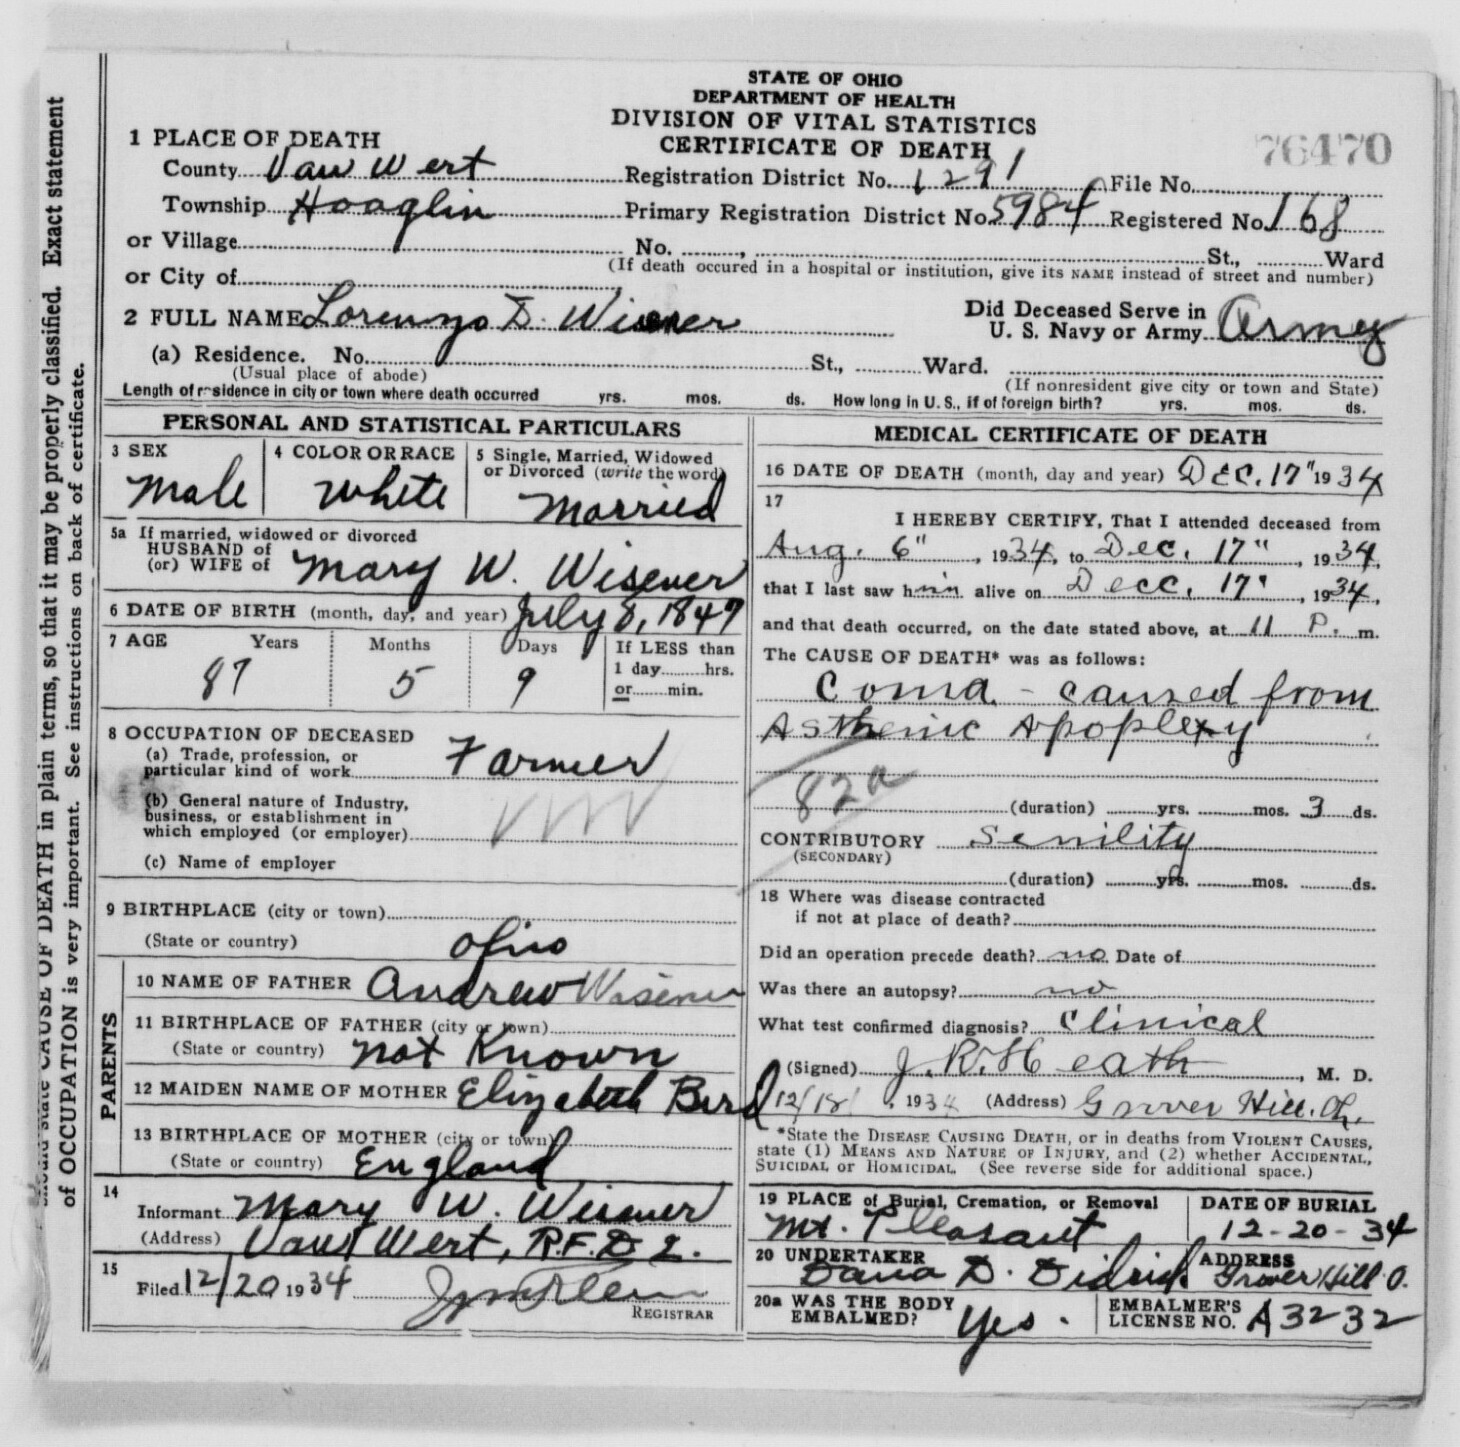 STATE OF OHIO
DEPARTMENT OF HEALTH
DIVISION OF VITAL STATISTICS
CERTIFICATE OF DEATH
76470
1 PLACE OF DEATH
County Van Wert Registration District No. 1291 File No.
Township Hoaglin Primary Registration District No. 5984 Registered No. 168
or Village No. , St., Ward
(If death occured in a hospital or institution, give its NAME instead of street and number)
or City of
2 FULL NAME Lorenzo D. Wisener
Did Deceased Serve in U. S. Navy or Army Army
(a) Residence. No. St., Ward.
(Usual place of abode) (If nonresident give city or town and State)
Length of residence in city or town where death occurred yrs. mos. ds. How long in U. S., if of foreign birth? yrs. mos. ds.
PERSONAL AND STATISTICAL PARTICULARS
3 SEX Male
4 COLOR OR RACE White
5 Single, Married, Widowed or Divorced (write the word) Married
5a If married, widowed or divorced
HUSBAND of
(or) WIFE of Mary W. Wisener
6 DATE OF BIRTH (month, day, and year) July 8, 1847
7 AGE Years Months Days If LESS than
87 5 9 1 day hrs.
or min.
8 OCCUPATION OF DECEASED
(a) Trade, profession, or
particular kind of work Farmer
(b) General nature of Industry,
business, or establishment in
which employed (or employer)
(c) Name of employer
9 BIRTHPLACE (city or town)
(State or country) Ohio
PARENTS
10 NAME OF FATHER Andrew Wisener
11 BIRTHPLACE OF FATHER (city or town)
(State or country) Not Known
12 MAIDEN NAME OF MOTHER Elizabeth Bird
13 BIRTHPLACE OF MOTHER (city or town)
(State or country) England
14
Informant Mary W. Wisener
(Address) Van Wert, R.F.D 2.
15
Filed 12/20 1934
REGISTRAR
MEDICAL CERTIFICATE OF DEATH
16 DATE OF DEATH (month, day and year) Dec. 17" 1934
17
I HEREBY CERTIFY, That I attended deceased from
Aug. 6", 1934, to Dec. 17", 1934,
that I last saw him alive on Decc. 17", 1934,
and that death occurred, on the date stated above, at 11 P. m.
The CAUSE OF DEATH* was as follows:
Coma - caused from
Asthenic Apoplexy
82a
(duration) yrs. mos. 3 ds.
CONTRIBUTORY Senility
(SECONDARY)
(duration) yrs. mos. ds.
18 Where was disease contracted
if not at place of death?
Did an operation precede death? no Date of
Was there an autopsy? no
What test confirmed diagnosis? Clinical
(Signed) J. R. Heath, M. D.
12/18/, 1934 (Address) Grover Hill, Oh.
*State the DISEASE CAUSING DEATH, or in deaths from VIOLENT CAUSES,
state (1) MEANS AND NATURE OF INJURY, and (2) whether ACCIDENTAL,
SUICIDAL or HOMICIDAL. (See reverse side for additional space.)
19 PLACE of Burial, Cremation, or Removal DATE OF BURIAL
Mt. Pleasant 12-20-34
20 UNDERTAKER ADDRESS
Dana D. Didrick Grover Hill O.
20a WAS THE BODY
EMBALMED? Yes.
EMBALMER'S
LICENSE NO. A3232
should state CAUSE OF DEATH in plain terms, so that it may be properly classified. Exact statement
of OCCUPATION is very important. See instructions on back of certificate.